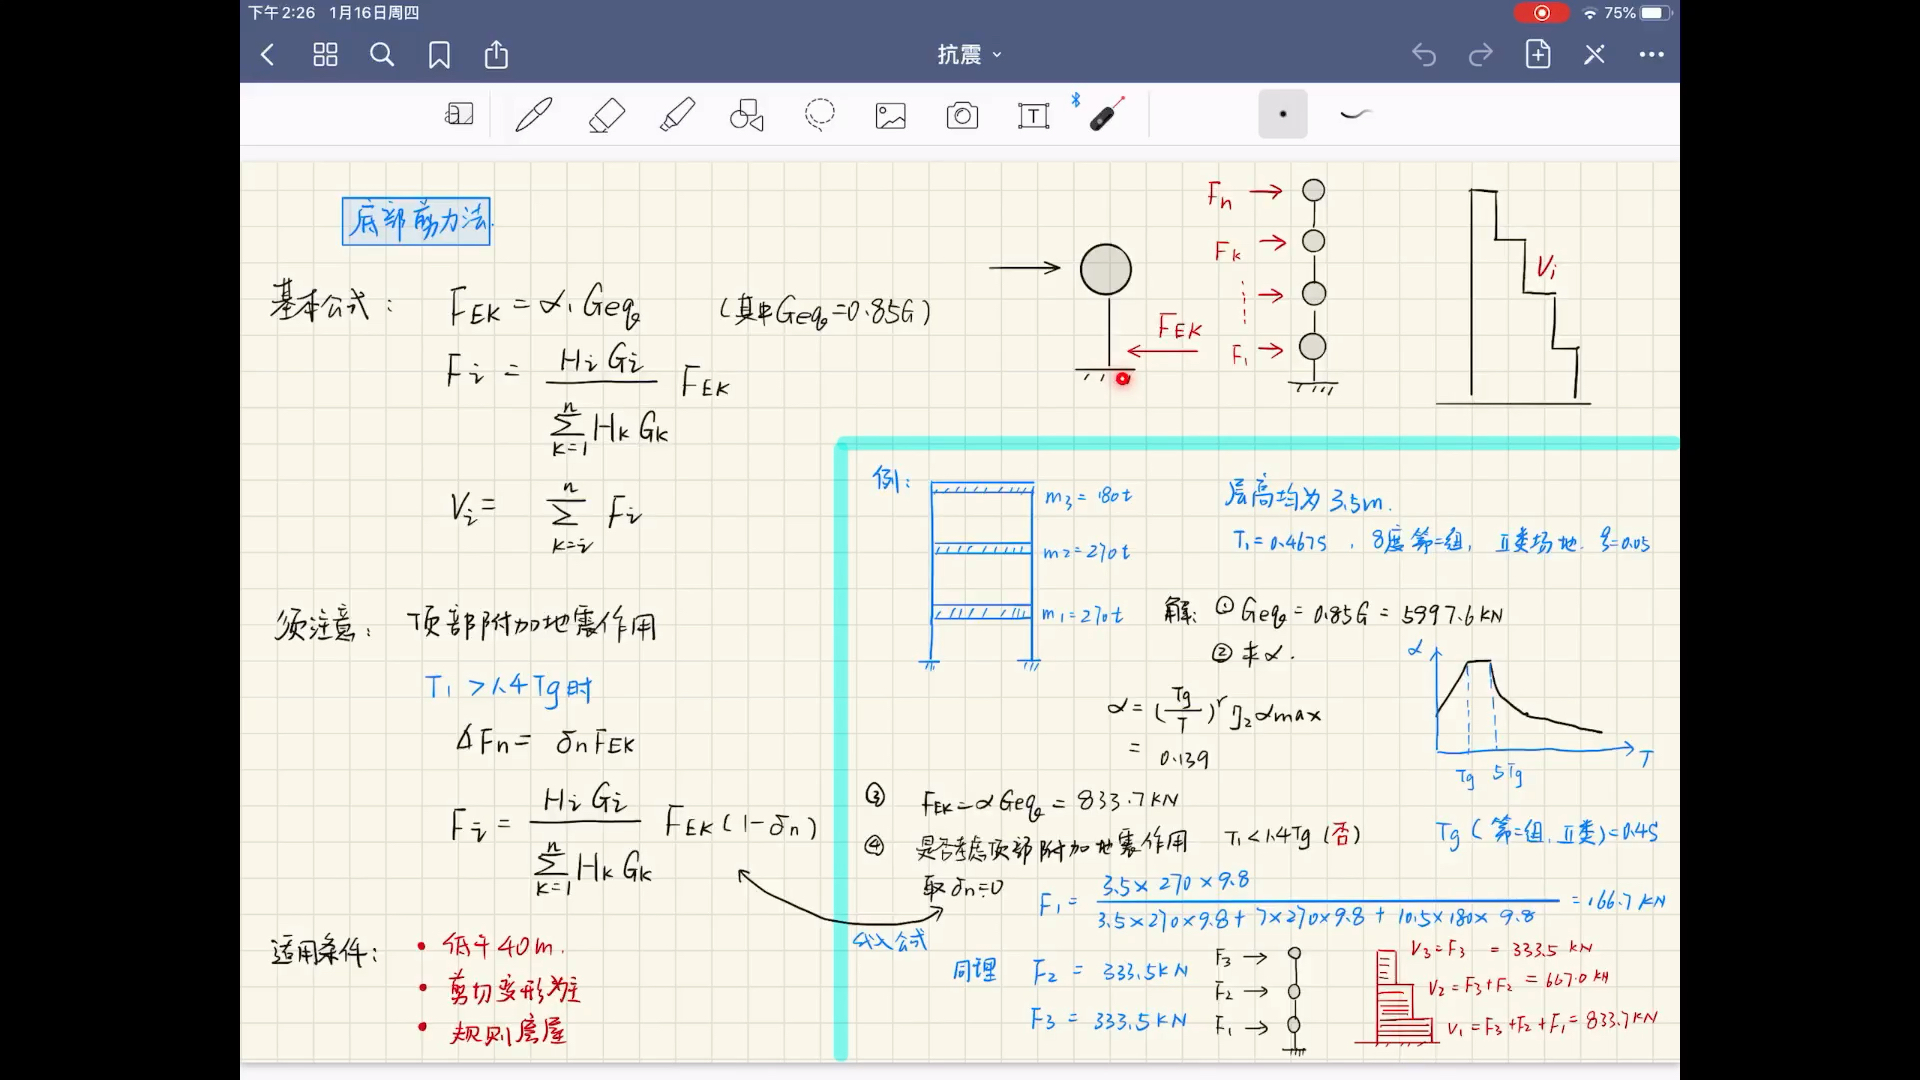 下午2:26 1月16日周四
75%
抗震
底部剪力法.
基本公式: F_EK = α₁ Geq (其中Geq=0.85G)
F_i = H_i G_i / Σ_{k=1}^{n} H_k G_k F_EK
V_i = Σ_{k=i}^{n} F_i
须注意: 顶部附加地震作用
T₁ > 1.4Tg时
ΔFn = δn F_EK
F_i = H_i G_i / Σ_{k=1}^{n} H_k G_k F_EK (1-δn)
适用条件:
• 低于40m.
• 剪切变形为主
• 规则房屋
F_EK
Fn
Fk
F₁
V_i
例:
m₃ = 180t
m₂ = 270t
m₁ = 270t
层高均为3.5m.
T₁=0.467S, 8度第二组, Ⅱ类场地. ξ=0.05
解: ① Geq = 0.85G = 5997.6KN
② 求α.
α = (Tg/T)^r η₂ αmax
= 0.139
α
Tg 5Tg T
Tg (第二组, Ⅱ类)=0.4S
③ F_EK = αGeq = 833.7KN
④ 是否考虑顶部附加地震作用 T₁<1.4Tg (否)
取δn=0
代入公式
F₁ = 3.5×270×9.8 / 3.5×270×9.8 + 7×270×9.8 + 10.5×180×9.8 = 166.7KN
同理 F₂ = 333.5KN
F₃ = 333.5KN
F₃
F₂
F₁
V₃=F₃ = 333.5 KN
V₂ = F₃+F₂ = 667.0 KN
V₁ = F₃+F₂+F₁ = 833.7KN